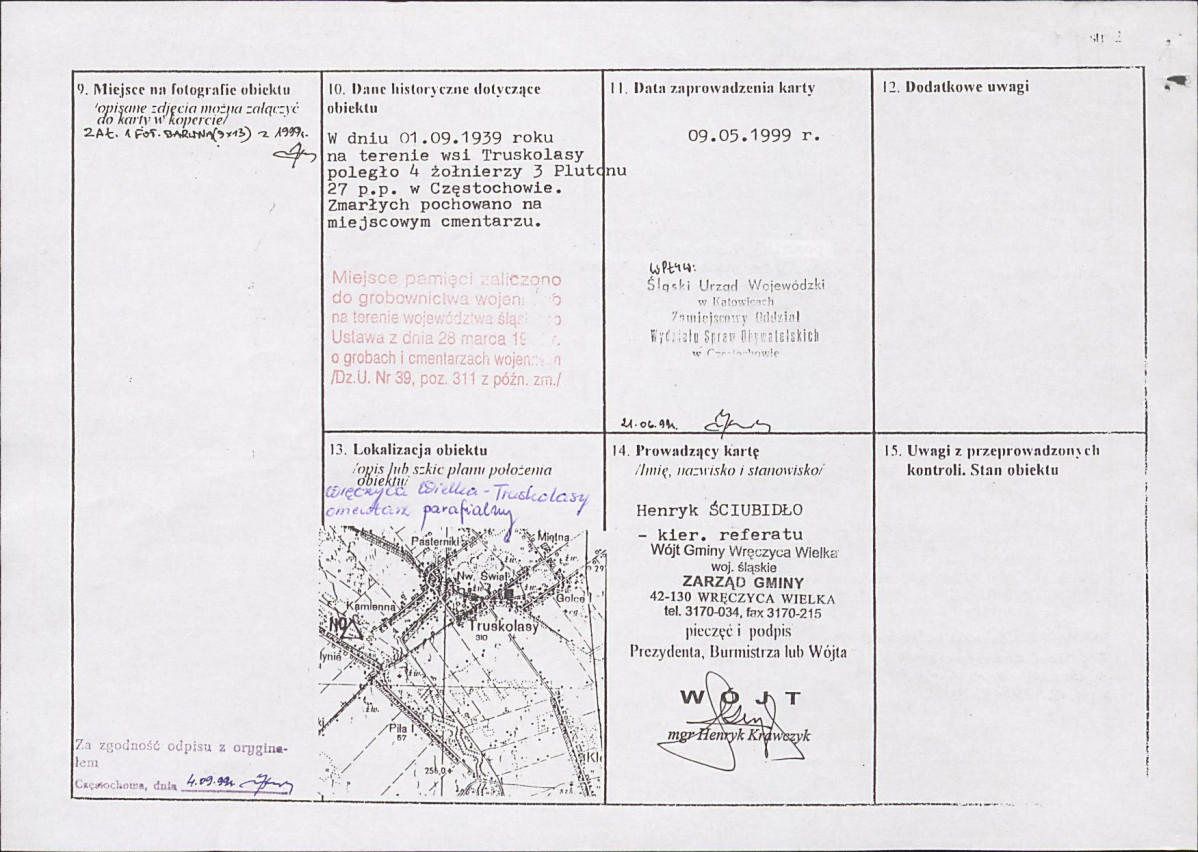 str 2
9. Miejsce na fotografie obiektu
/opisane zdjęcia można załączyć
do karty w kopercie/
ZAŁ. 1 FOT. BARWNA (9x13) z 1999r.
10. Dane historyczne dotyczące
obiektu
W dniu 01.09.1939 roku
na terenie wsi Truskolasy
poległo 4 żołnierzy 3 Plutonu
27 p.p. w Częstochowie.
Zmarłych pochowano na
miejscowym cmentarzu.
Miejsce pamięci zaliczono
do grobownictwa wojen
na terenie województwa śląs
Ustawa z dnia 28 marca 19 r.
o grobach i cmentarzach wojen
/Dz.U. Nr 39, poz. 311 z późn. zm./
11. Data zaprowadzenia karty
09.05.1999 r.
WPŁYW:
Śląski Urząd Wojewódzki
w Katowicach
Zamiejscowy Oddział
Wydziału Spraw Obywatelskich
w Częstochowie
21.06.99r.
12. Dodatkowe uwagi
13. Lokalizacja obiektu
/opis lub szkic planu położenia
obiektu/
Wręczyca Wielka - Truskolasy
cmentarz parafialny
Pasternik
Miętna
Nw. Świat
Golce
Kamienna
Truskolasy
310
Piła
57
256,0
Kl
14. Prowadzący kartę
/Imię, nazwisko i stanowisko/
Henryk ŚCIUBIDŁO
- kier. referatu
Wójt Gminy Wręczyca Wielka
woj. śląskie
ZARZĄD GMINY
42-130 WRĘCZYCA WIELKA
tel. 3170-034, fax 3170-215
pieczęć i podpis
Prezydenta, Burmistrza lub Wójta
WÓJT
mgr Henryk Krawczyk
15. Uwagi z przeprowadzonych
kontroli. Stan obiektu
Za zgodność odpisu z orygina-
łem
Częstochowa, dnia 4.09.99r.